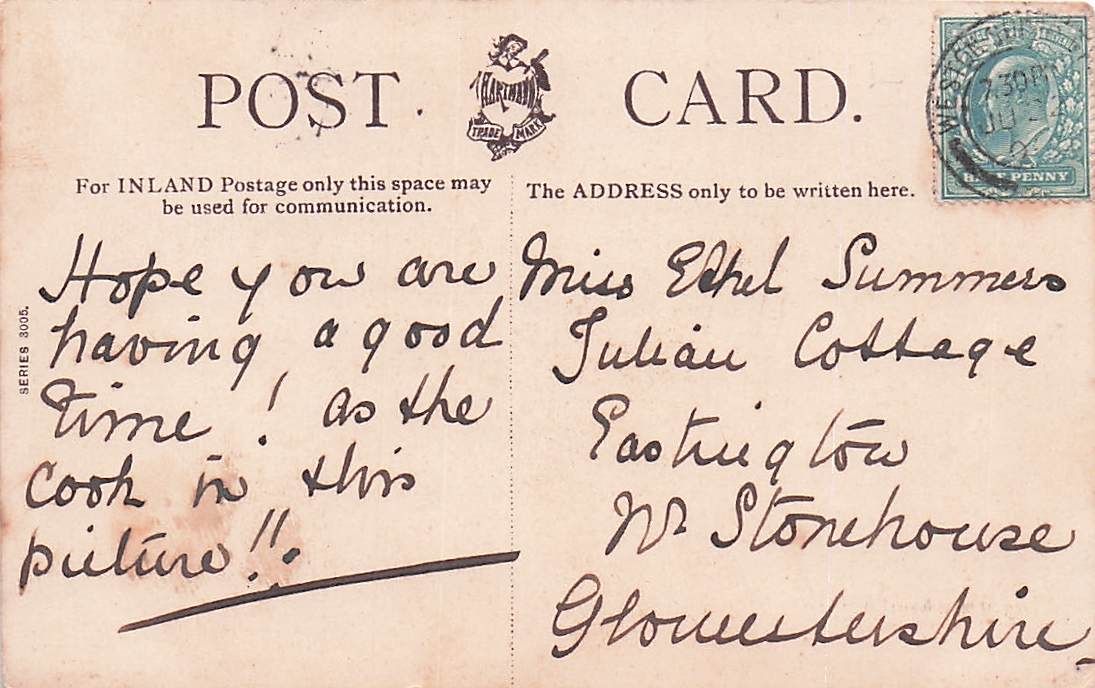 POST CARD.
HARTMANN
TRADE MARK
For INLAND Postage only this space may
be used for communication.
The ADDRESS only to be written here.
7.30 PM
HALF PENNY
SERIES 3005.
Hope you are
having a good
time! as the
cook in this
picture!!.
Miss Ethel Summers
Julian Cottage
Eastington
Nr Stonehouse
Gloucestershire